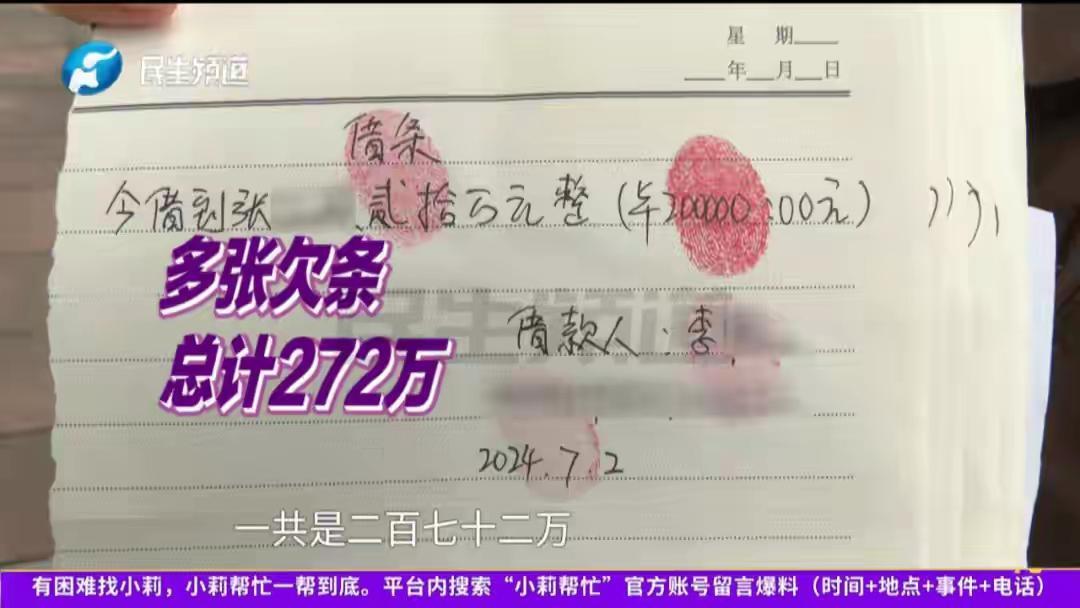 民生频道
星 期____
____年___月___日
借条
今借到张 贰拾万元整（¥200000.00元）
多张欠条
民生频道
总计272万
借款人：李
2024.7.2
一共是二百七十二万
有困难找小莉，小莉帮忙一帮到底。平台内搜索“小莉帮忙”官方账号留言爆料（时间+地点+事件+电话）